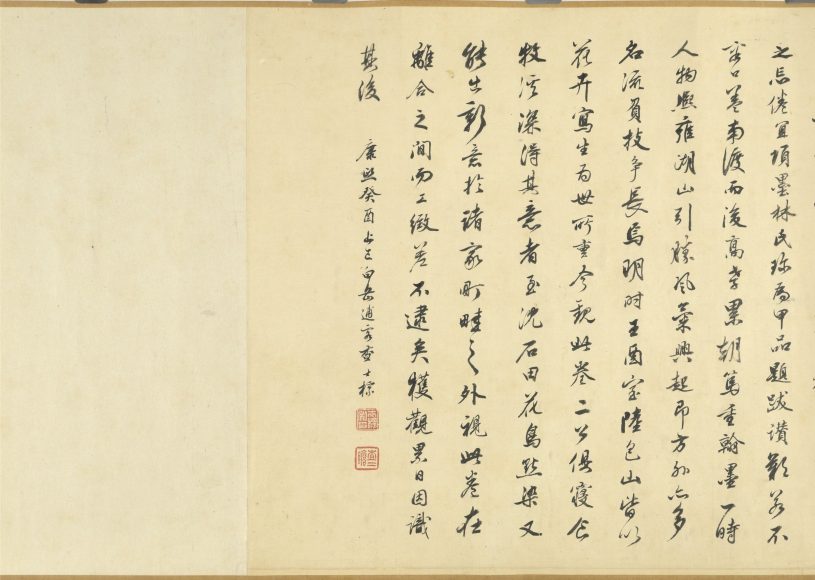 之忘倦宜項墨林氏珍為甲品題跋讚歎若不
容口蓋南渡而後高孝累朝篤重翰墨一時
人物熙雍湖山引勝風氣興起即方外亦多
名流負技爭長焉明時王酉室陸包山皆以
花卉寫生為世所重今觀此卷二公俱寢食
牧溪深得其意者至沈石田花鳥點染又
能出新意於諸家町畦之外視此卷在
離合之間而工緻差不逮矣獲觀累日因識
其後 康熙癸酉上巳白岳逋客查士標